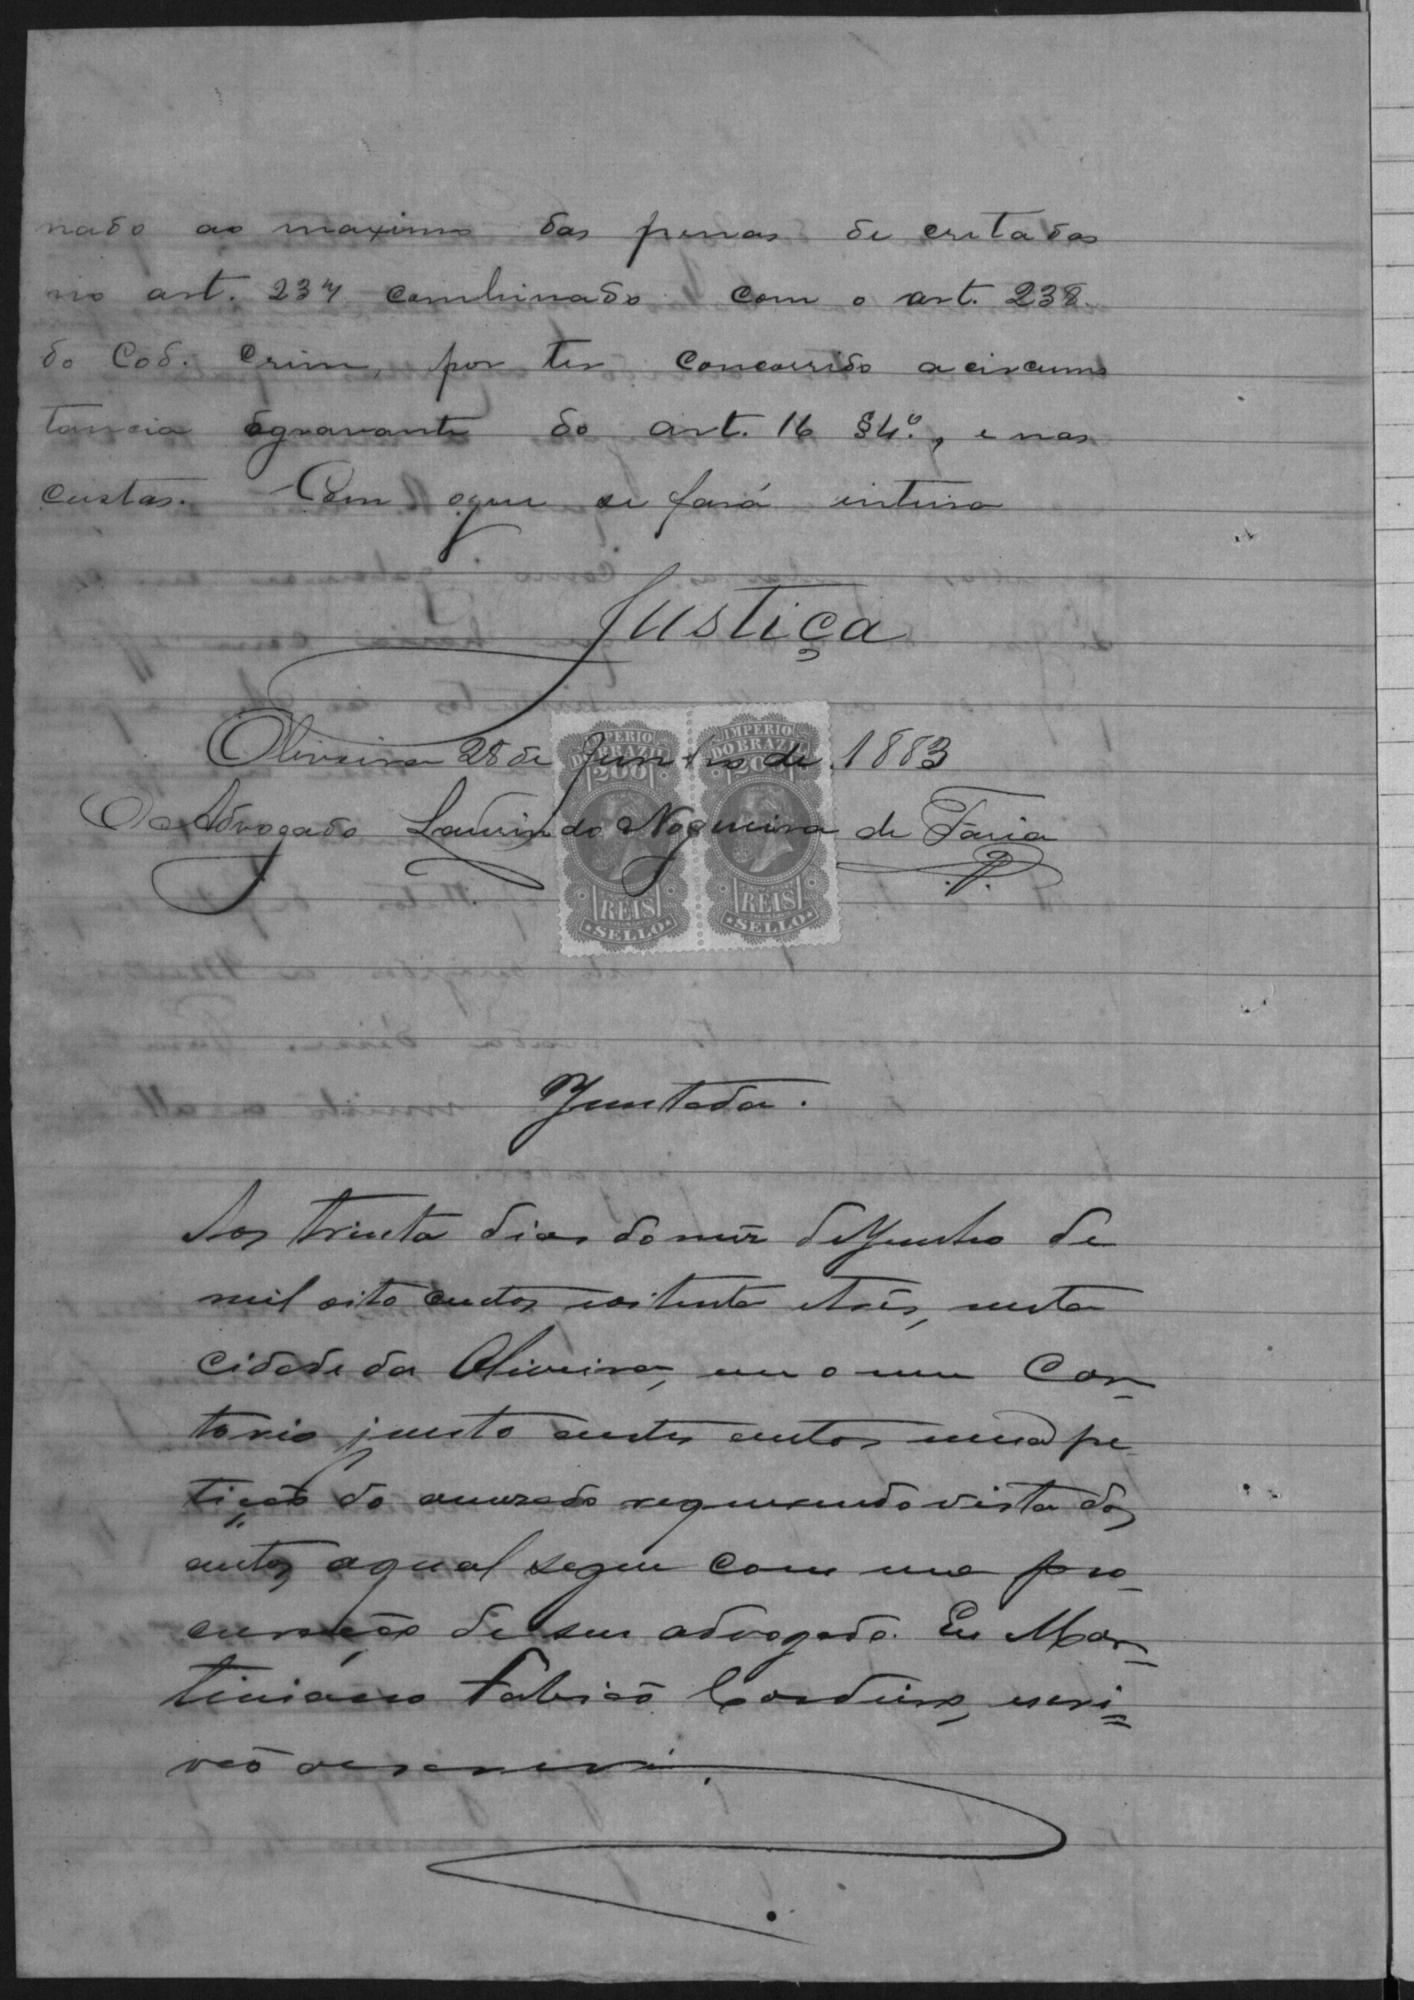 nado ao maximo das penas decretadas
no art. 237 combinado com o art. 238
do Cod. Crim, por ter concorrido a circums
tancia agravante do art. 16 §4º, e nas
custas. Com o que se fará inteira
Justiça
Oliveira 28 de Junho de 1883
O Advogado Laurindo Nogueira de Faria
IMPERIO DO BRAZIL 200 REIS SELLO
IMPERIO DO BRAZIL 200 REIS SELLO
Juntada.
Aos trinta dias do mez de Junho de
mil oito centos e oitenta e tres, nesta
cidade da Oliveira, em o meu Car-
torio junto a estes autos uma pe-
tição do accusado requerendo vista dos
autos, a qual segue com uma pro-
curação de seu advogado. Eu Mar-
tiniano Fabião Cordeiro, escri-
vão o escrevi.